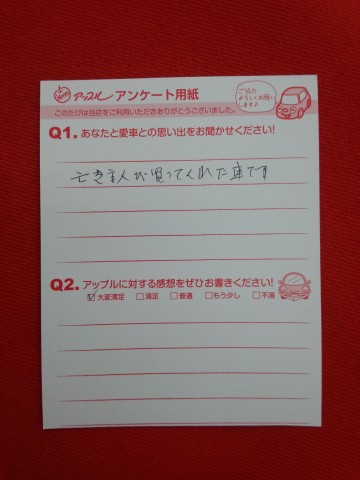 Apple アップル アンケート用紙
ご協力
よろしくお願い
します♪
このたびは当店をご利用いただきありがとうございました。
Q1. あなたと愛車との思い出をお聞かせください!
亡き主人が買ってくれた車です
Q2. アップルに対する感想をぜひお書きください!
☑大変満足 □満足 □普通 □もう少し □不満